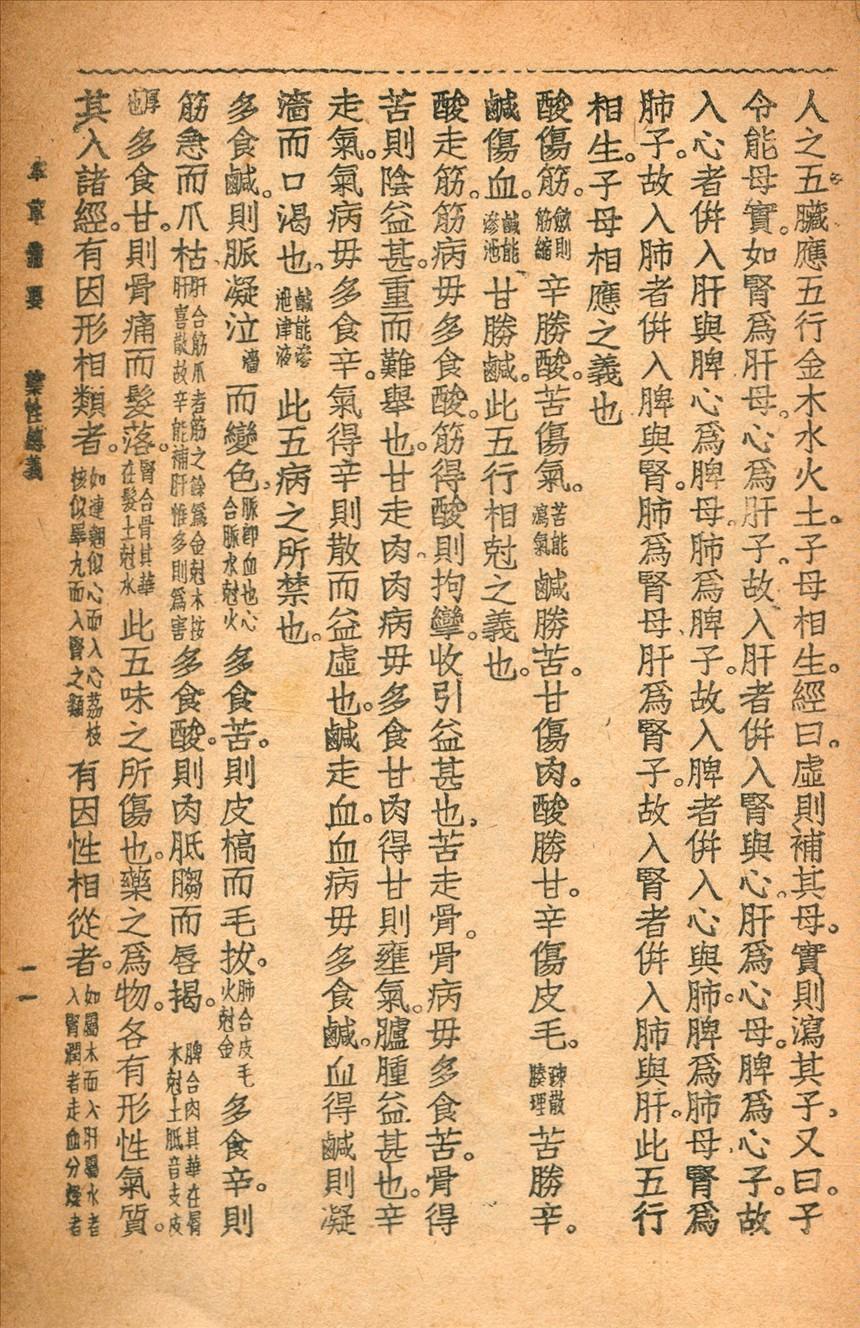 人之五臟應五行金木水火土。子母相生。經曰。虛則補其母。實則瀉其子。又曰。子
令能母實。如腎爲肝母。心爲肝子。故入肝者倂入腎與心。肝爲心母。脾爲心子。故
入心者倂入肝與脾。心爲脾母。肺爲脾子。故入脾者倂入心與肺。脾爲肺母腎爲
肺子。故入肺者倂入脾與腎。肺爲腎母肝爲腎子。故入腎者倂入肺與肝。此五行
相生。子母相應之義也
酸傷筋。斂則筋縮辛勝酸。苦傷氣。苦能瀉氣鹹勝苦。甘傷肉。酸勝甘。辛傷皮毛。疎散腠理苦勝辛。
鹹傷血。鹹能滲泄甘勝鹹。此五行相尅之義也。
酸走筋。筋病毋多食酸。筋得酸則拘攣。收引益甚也。苦走骨。骨病毋多食苦。骨得
苦則陰益甚。重而難舉也。甘走肉。肉病毋多食甘。肉得甘則壅氣。臚腫益甚也。辛
走氣。氣病毋多食辛。氣得辛則散而益虛也。鹹走血。血病毋多食鹹。血得鹹則凝
濇而口渴也。鹹能滲泄津液此五病之所禁也。
多食鹹。則脈凝泣濇而變色。脈卽血也心合脈水尅火多食苦。則皮槁而毛拔。肺合皮毛火尅金多食辛。則
筋急而爪枯肝合筋爪者筋之餘爲金尅木按肝喜散故辛能補肝惟多則爲害多食酸。則肉胝䐢而唇揭。脾合肉其華在脣木尅土胝音支皮
厚也多食甘。則骨痛而髮落。腎合骨其華在髮土尅水此五味之所傷也。藥之爲物。各有形性氣質。
其入諸經。有因形相類者。如連翹似心而入心荔枝核似睪丸而入腎之類有因性相從者。如屬木而入肝屬水者入腎潤者走血分燥者
本草備要 藥性總義 一一